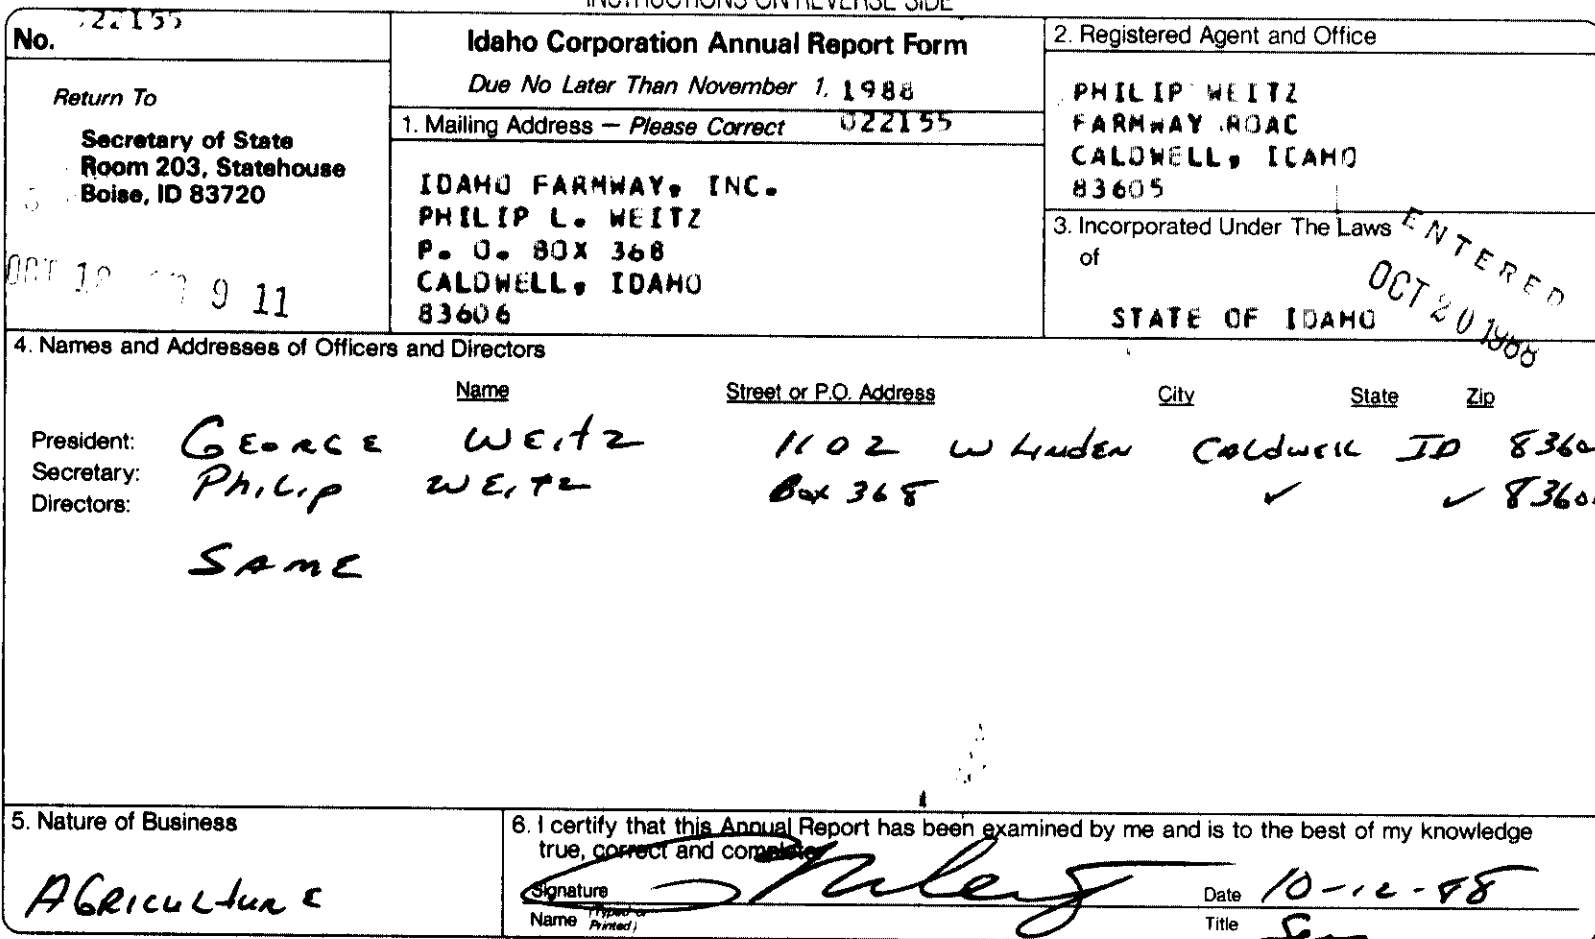 INSTRUCTIONS ON REVERSE SIDE
No. 022155
Return To
Secretary of State
Room 203, Statehouse
Boise, ID 83720
9 11
Idaho Corporation Annual Report Form
Due No Later Than November 1, 1988
1. Mailing Address — Please Correct 022155
IDAHO FARMWAY, INC.
PHILIP L. WEITZ
P. O. BOX 368
CALDWELL, IDAHO
83606
2. Registered Agent and Office
PHILIP WEITZ
FARMWAY ROAD
CALDWELL, IDAHO
83605
3. Incorporated Under The Laws
of
STATE OF IDAHO
ENTERED
OCT 20 1988
4. Names and Addresses of Officers and Directors
Name Street or P.O. Address City State Zip
President: GEORGE WEITZ 1102 W LINDEN CALDWELL ID 8360
Secretary: PHILIP WEITZ Box 368 ✓ ✓ 8360
Directors:
SAME
5. Nature of Business
AGRICULTURE
6. I certify that this Annual Report has been examined by me and is to the best of my knowledge
true, correct and complete.
Signature Date 10-12-88
Name (Typed or Printed) Title